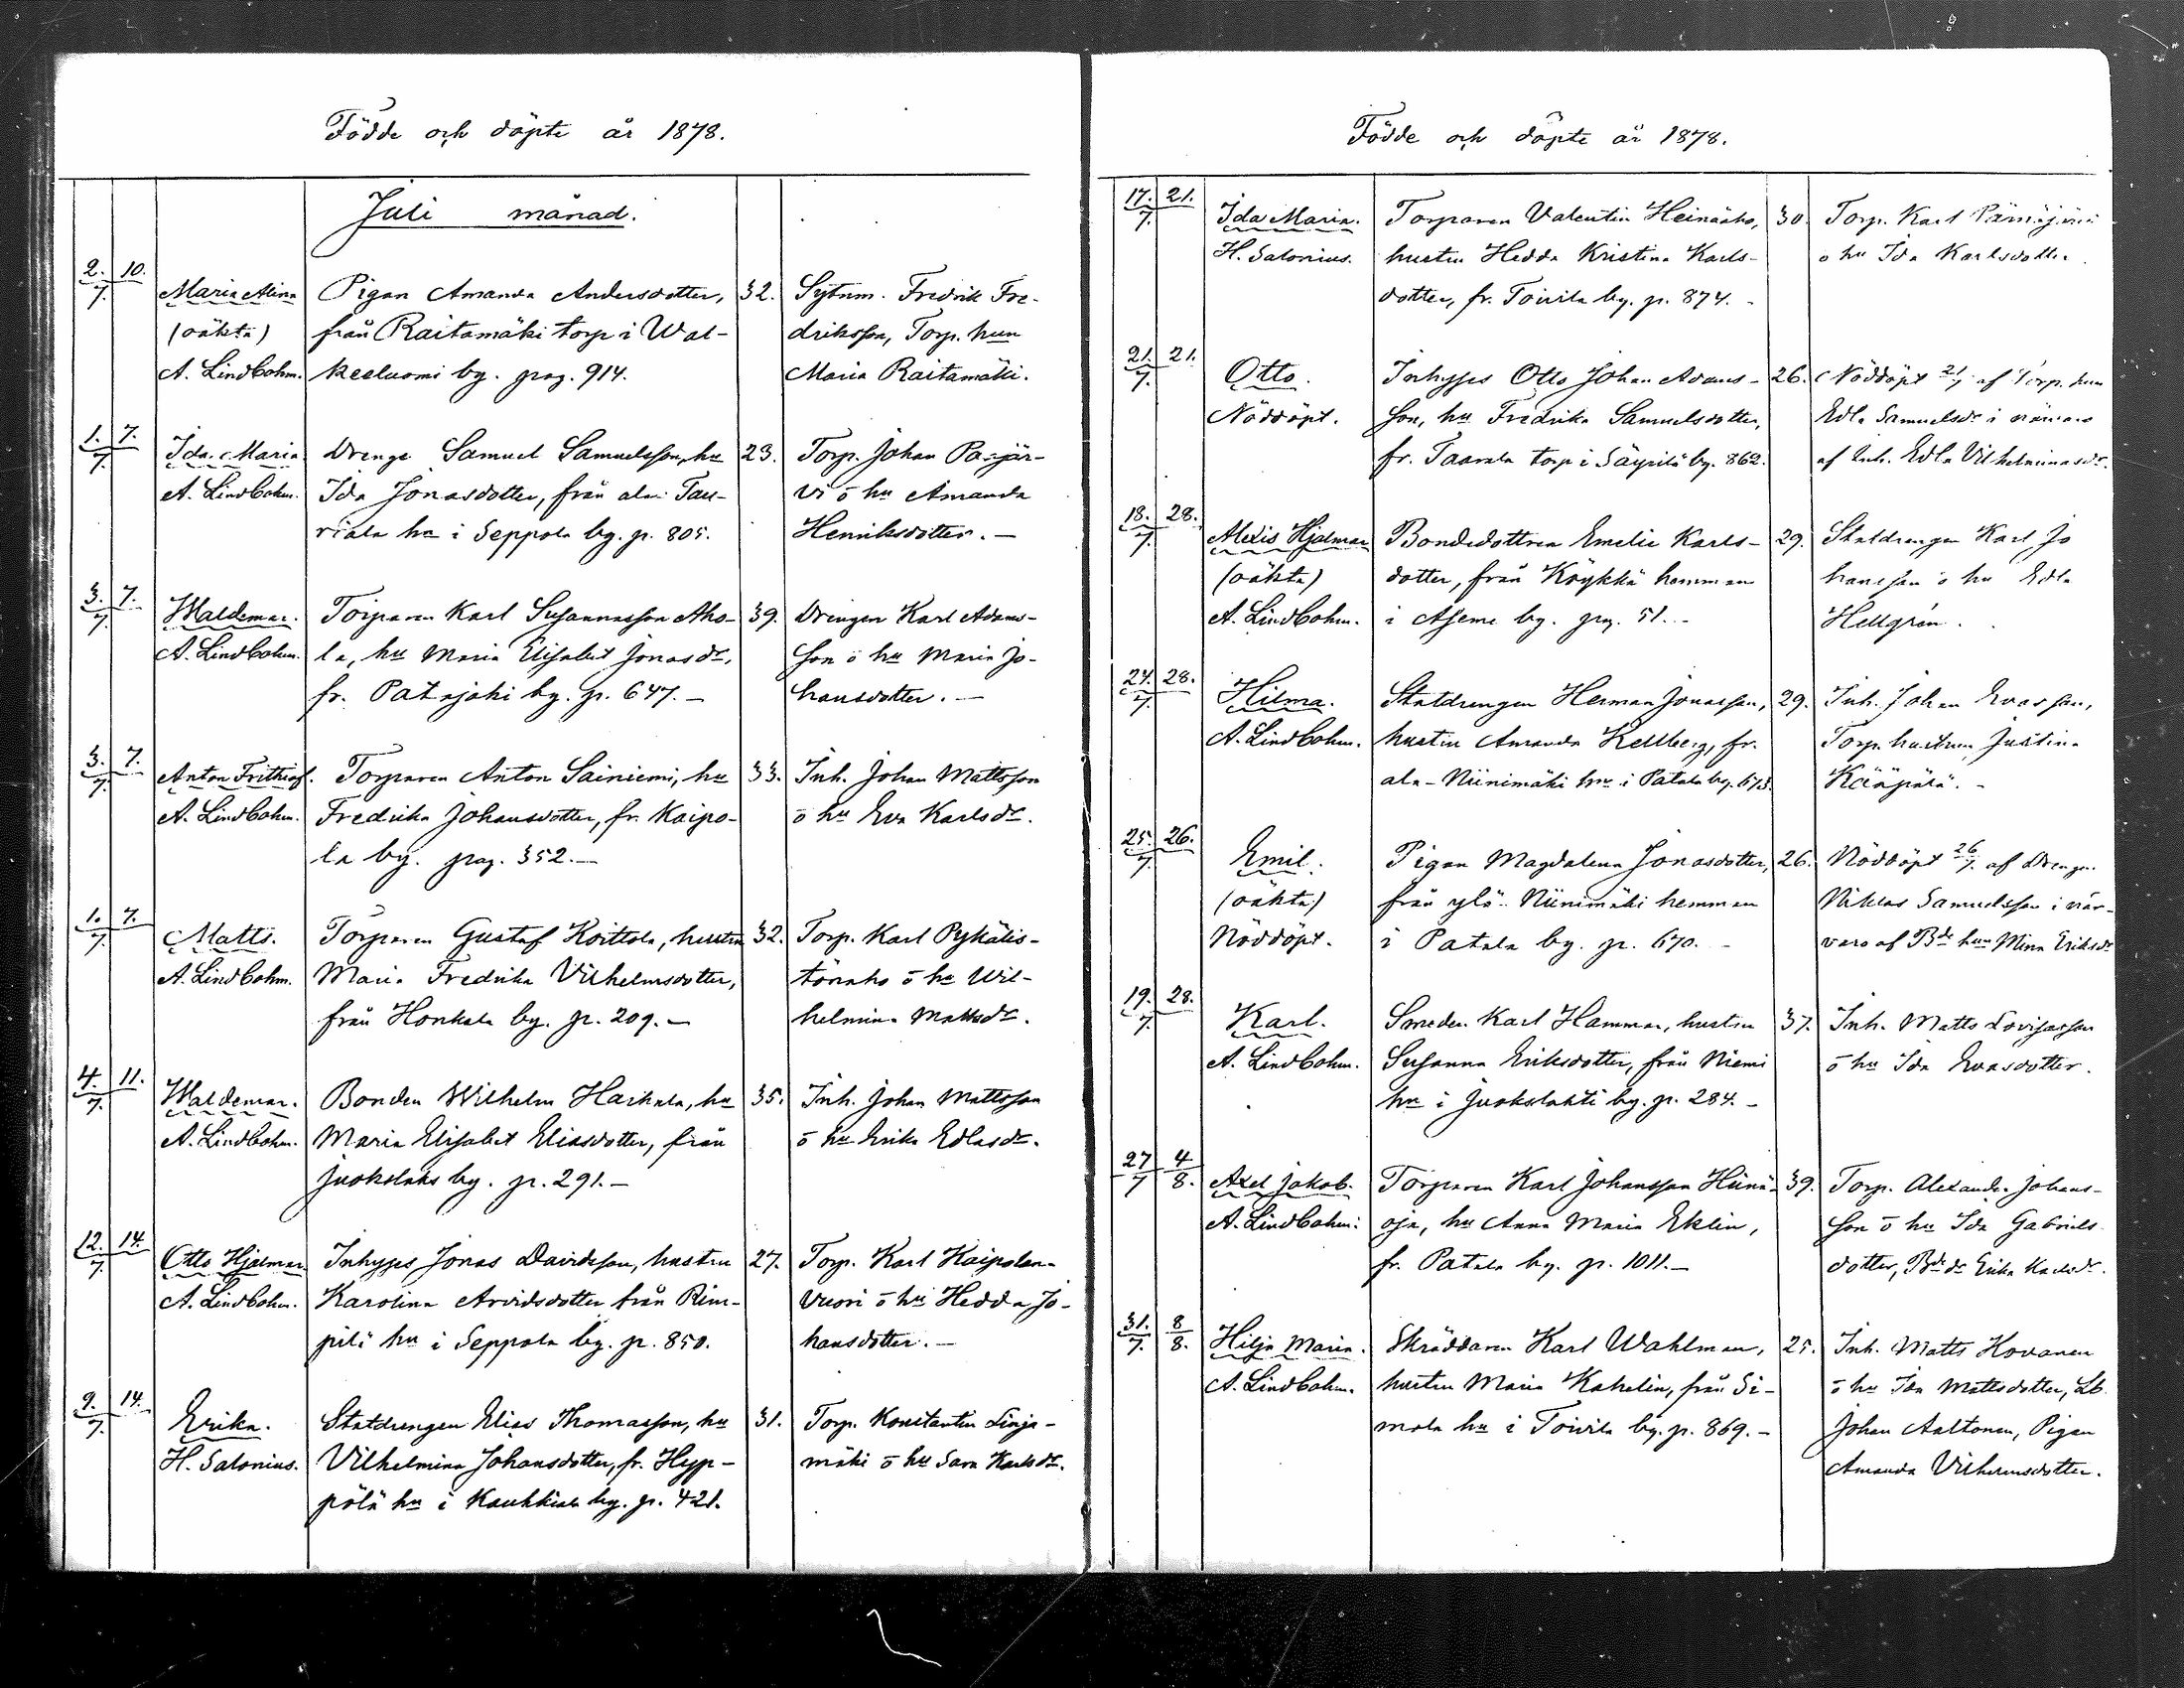 Födde och döpte år 1878.
Juli månad.
2. 10.
7.
Maria Alina Pigan Amanda Andersdotter, 32. Sytnm. Fredrik Fre-
(oäkta) från Raitamäki torp i Wal- driksson, Torp. hun
A. Lindbohm. keeluomi by. pag. 914. Maria Raitamäki.
1. 7.
7.
Ida Maria Drenge Samuel Samuelsson, hu 23. Torp. Johan Pajär-
A. Lindbohm. Ida Jonasdotter, från ala- Tau- vi o hu Amanda
riala hn i Seppola by. p. 805. Henriksdotter. —
3. 7.
7.
Waldemar. Torparen Karl Susannasson Aho- 39. Drengen Karl Adams-
A. Lindbohm. la, hu Maria Elisabet Jonasdr, son o hu Maria Jo-
fr. Patajoki by. p. 647. — hansdotter. —
3. 7.
7.
Anton Frithiof. Torparen Anton Sainiemi, hu 33. Inh. Johan Mattsson
A. Lindbohm. Fredrika Johansdotter, fr. Kaipo- o hu Eva Karlsdr.
la by. pag. 352. —
1. 7.
7.
Matts. Torparen Gustaf Koittola, hustru 32. Torp. Karl Pykälis-
A. Lindbohm. Maria Fredrika Vilhelmsdotter, tönaho o hu Wil-
från Honkala by. p. 209. — helmina Mattsdr.
4. 11.
7.
Waldemar. Bonden Wilhelm Harkala, hu 35. Inh. Johan Mattsson
A. Lindbohm. Maria Elisabet Eliasdotter, från o hu Erika Edlasdr.
Juokslaks by. p. 291. —
12. 14.
7.
Otto Hjalmar Inhyses Jonas Davidsson, hustru 27. Torp. Karl Kaipolan-
A. Lindbohm. Karolina Arvidsdotter från Rim- vuori o hu Hedda Jo-
pilä hn i Seppola by. p. 850. hansdotter. —
9. 14.
7.
Erika. Statdrengen Elias Thomasson, hu 31. Torp. Konstantin Linja-
H. Salonius. Vilhelmina Johansdotter, fr. Hyp- mäki o hu Sara Karlsdr.
pölä hn i Kauhkiala by. p. 421.
Födde och döpte år 1878.
17. 21.
7.
Ida Maria. Torparen Valentin Heinäaho, 30. Torp. Karl
H. Salonius. hustru Hedda Kristina Karls- o hu Ida Karlsdotter.
dotter, fr. Toivila by. p. 874. -
21. 21.
7.
Otto. Inhyses Otto Johan Adams- 26. Nöddöpt 21/7 af Torp. hun
Nöddöpt. son, hu Fredrika Samuelsdotter, Edla Samuelsdr i närvaro
fr. Taarala torp i Säyrilä by. 862. af Inh. Edla Vilhelminasdr.
18. 28.
7.
Alexis Hjalmar Bondedottren Emelie Karls- 29. Statdrengen Karl Jo
(oäkta) dotter, från Köykkä hemman hansson o hu Edla
A. Lindbohm. i Asemi by. pag. 51. - Hellgrén.
24. 28.
7.
Hilma. Statdrengen Herman Jonasson, 29. Inh. Johan Evasson,
A. Lindbohm. hustru Amanda Kellberg, fr. Torp. hustrun Justina
ala-Niinimäki hn i Patala by. 673. Kääpälä. -
25. 26.
7.
Emil. Pigan Magdalena Jonasdotter, 26. Nöddöpt 26/7 af Drengen
(oäkta) från ylä-Niinimäki hemman Niklas Samuelsson i när-
Nöddöpt. i Patala by. p. 670. - varo af Bde hun Mina Eriksdr
19. 28.
7.
Karl. Smeden Karl Hammar, hustru 37. Inh. Matts Lovisasson
A. Lindbohm. Susanna Eriksdotter, från Niemi o hu Ida Evasdotter.
hn i Juokslahti by. p. 284. -
27 4
7 8.
Axel Jakob. Torparen Karl Johansson Hiina- 39. Torp. Alexander Johans-
A. Lindbohm. oja, hu Anna Maria Eklin, son o hu Ida Gabriels
fr. Patala by. p. 1011. — dotter, Bde dr Erika Karlsdr.
31. 8
7. 8.
Hilja Maria. Skräddaren Karl Wahlman, 25. Inh. Matts Hovanen
A. Lindbohm. hustru Maria Kahelin, från Si- o hu Ida Mattsdotter, Lb.
mola hn i Toivila by. p. 869. - Johan Aaltonen, Pigan
Amanda Vilhelmsdotter.